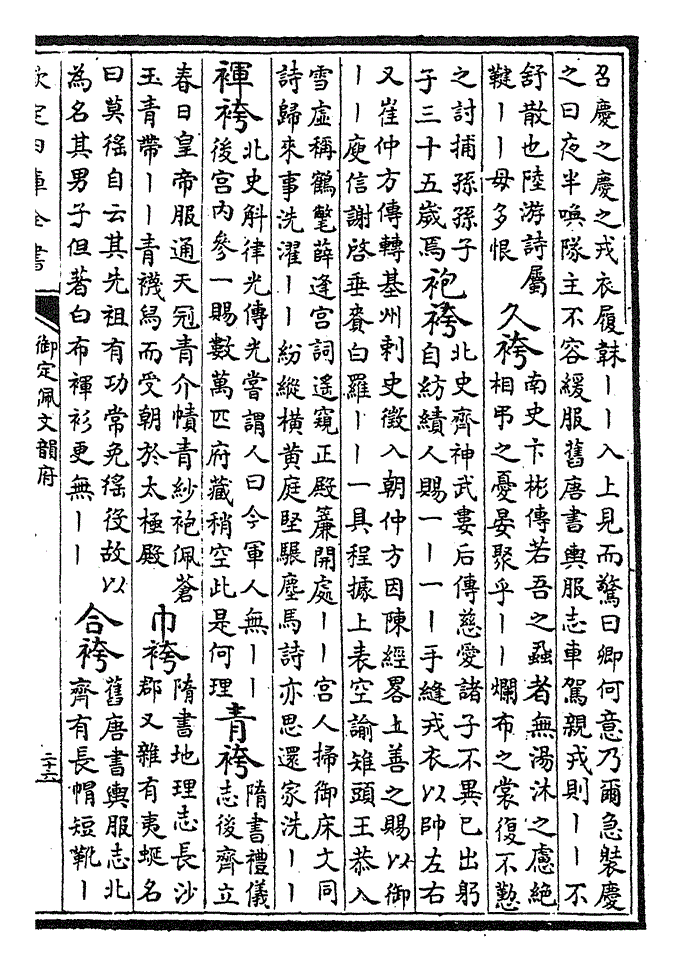 召慶之慶之戎衣履韎丨丨入上見而驚曰卿何意乃爾急裝慶
之曰夜半喚隊主不容緩服舊唐書輿服志車駕親戎則丨丨不
舒散也陸游詩屬
鞬丨丨毋多恨
久袴
南史卞彬傳若吾之蝨者無湯沐之慮絕
相弔之憂晏聚乎丨丨爛布之裳復不懃
之討捕孫孫子
子三十五歲焉
袍袴
北史齊神武婁后傳慈愛諸子不異已出躬
自紡績人賜一丨一丨手縫戎衣以帥左右
又崔仲方傳轉基州刺史徵入朝仲方因陳經畧上善之賜以御
丨丨庾信謝啓垂賚白羅丨丨一具程據上表空諭雉頭王恭入
雪虛稱鶴氅薛逢宫詞遙窺正殿簾開處丨丨宫人掃御床文同
詩歸來事洗濯丨丨紛縱橫黄庭堅騄塵馬詩亦思還家洗丨丨
褌袴
北史斛律光傳光嘗謂人曰今軍人無丨丨
後宫内參一賜數萬匹府藏稍空此是何理
青袴
隋書禮儀
志後齊立
春日皇帝服通天冠青介幘青紗袍佩蒼
玉青帶丨丨青襪舄而受朝於太極殿
巾袴
隋書地理志長沙
郡又雜有夷蜑名
曰莫徭自云其先祖有功常免徭役故以
為名其男子但著白布褌衫更無丨丨
合袴
舊唐書輿服志北
齊有長帽短靴丨
欽定四庫全書
御定佩文韻府
二十六